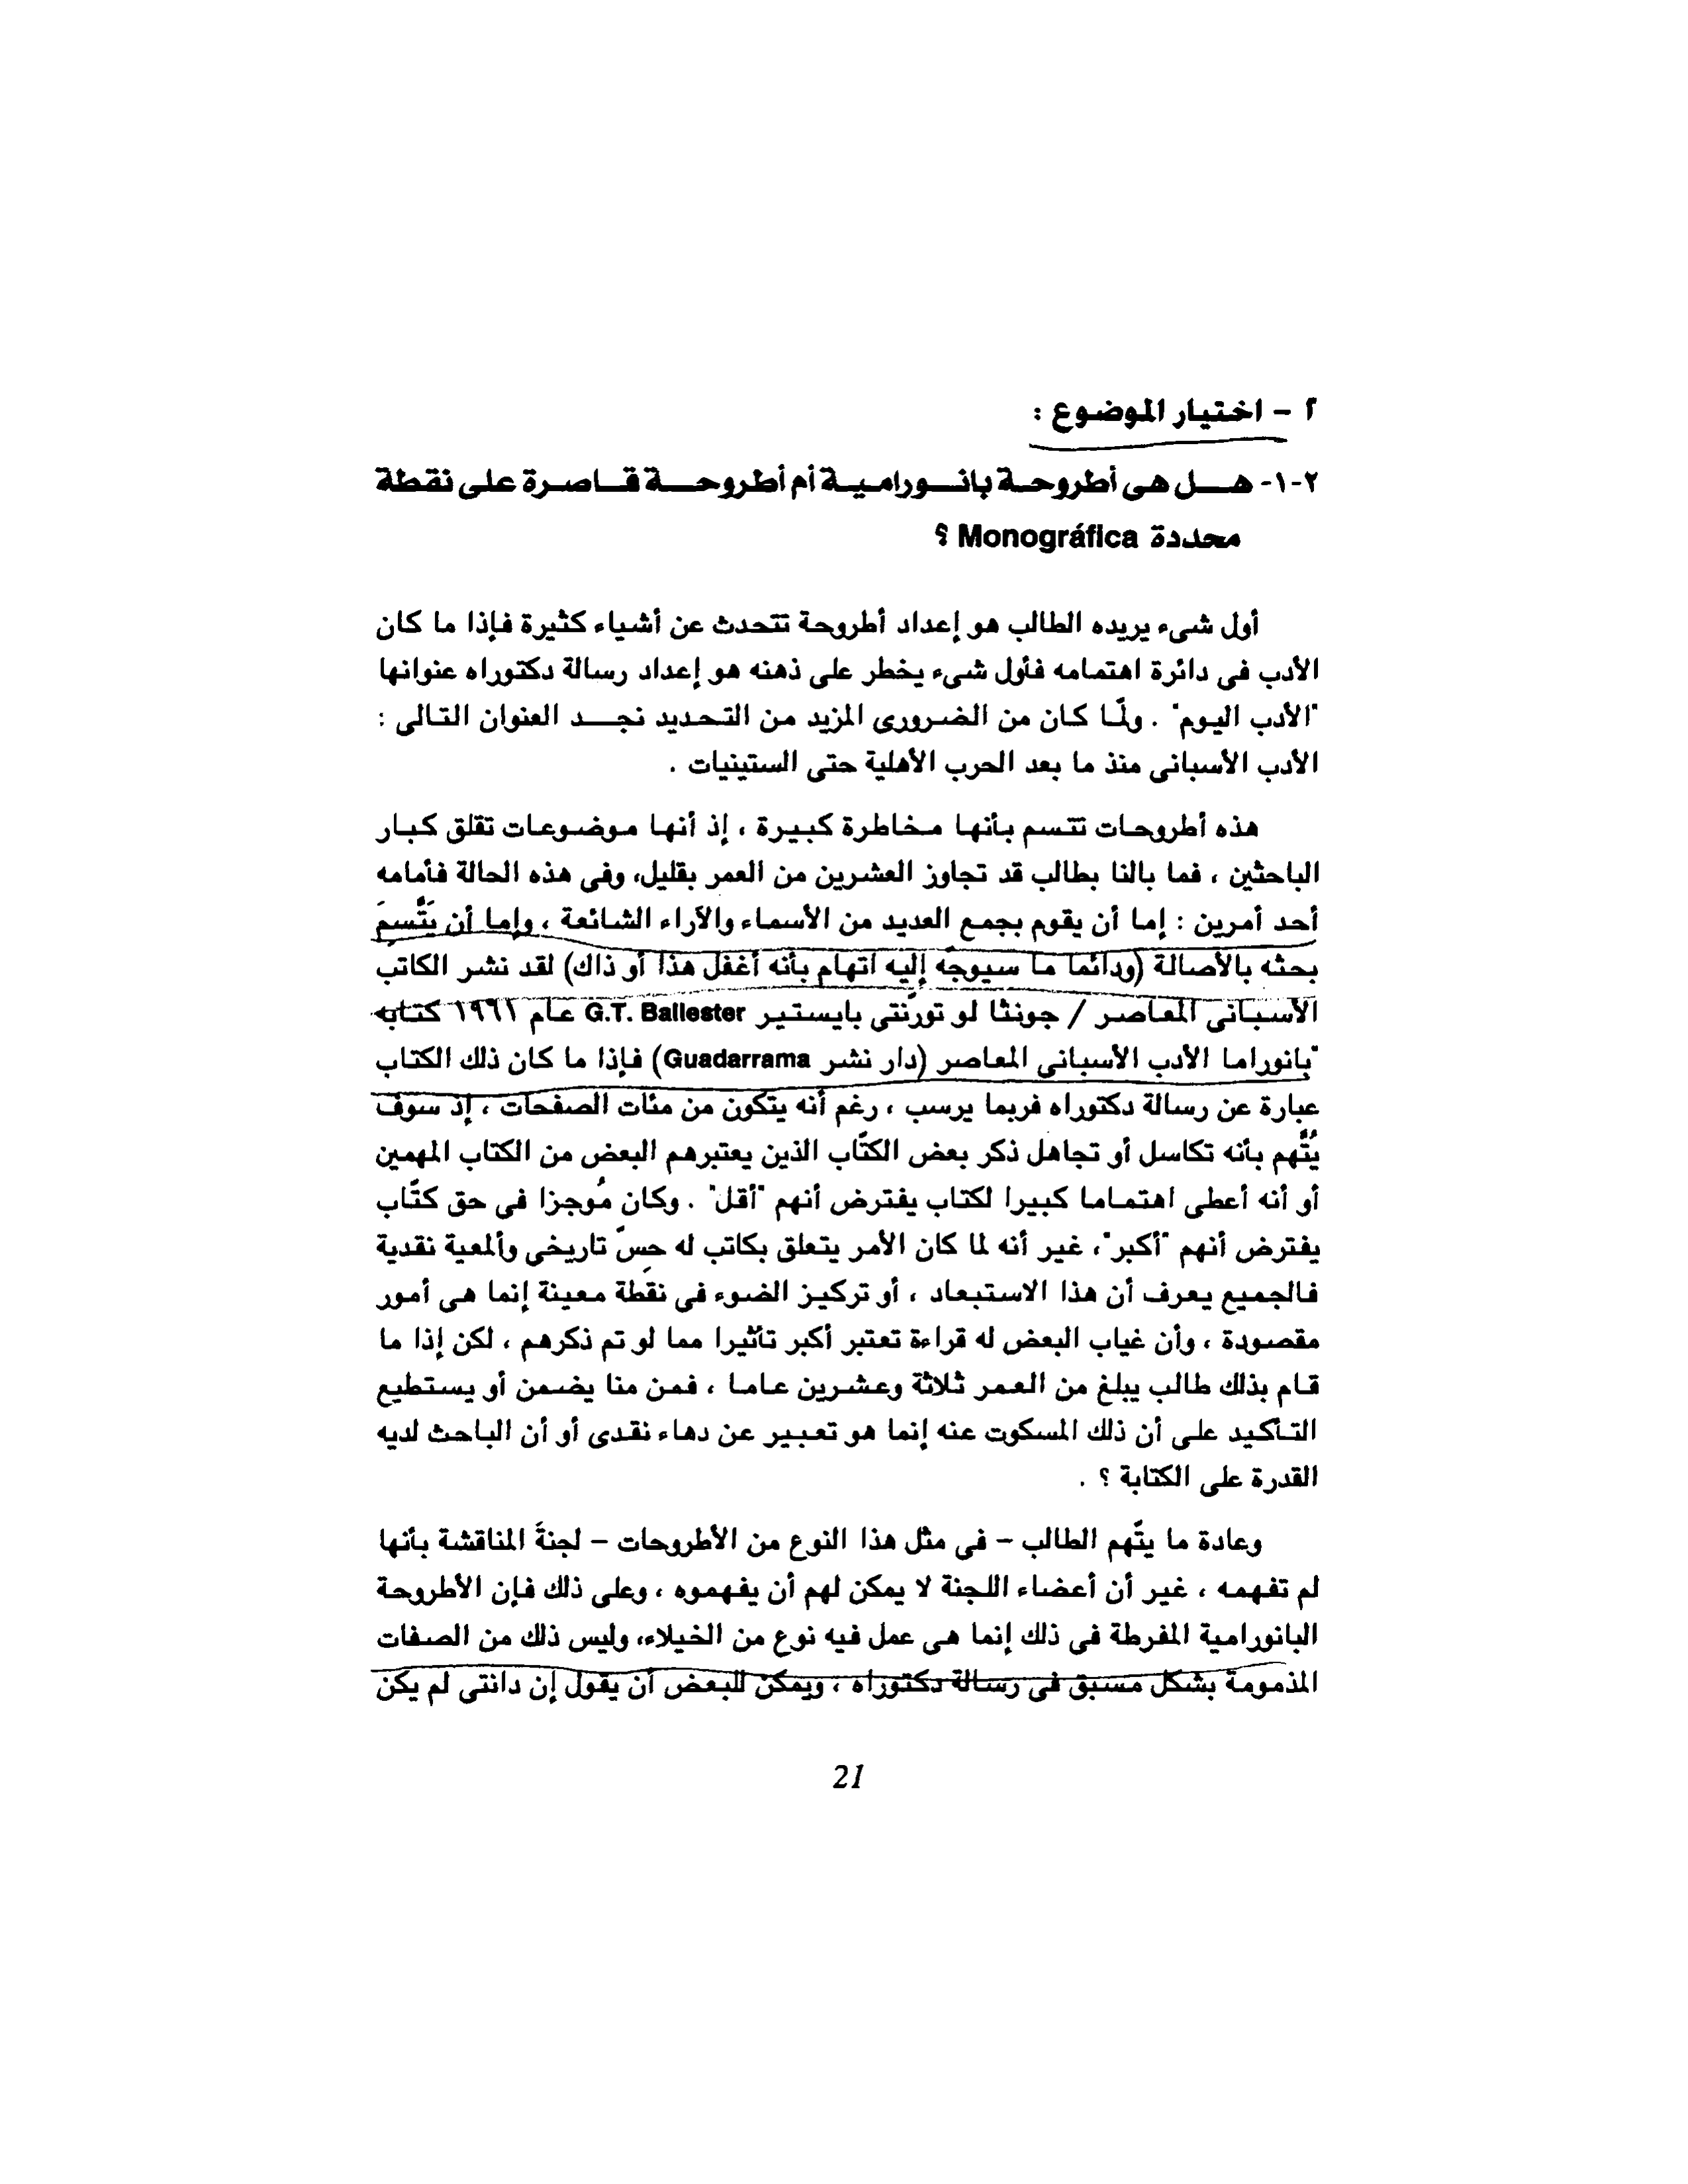 ٢ - اختيار الموضوع :
٢-١- هل هى أطروحة بانورامية أم أطروحة قاصرة على نقطة
محددة Monográfica ؟
أول شىء يريده الطالب هو إعداد أطروحة تتحدث عن أشياء كثيرة فإذا ما كان
الأدب فى دائرة اهتمامه فأول شىء يخطر على ذهنه هو إعداد رسالة دكتوراه عنوانها
"الأدب اليوم" . ولمّا كان من الضرورى المزيد من التحديد نجد العنوان التالى :
الأدب الأسبانى منذ ما بعد الحرب الأهلية حتى الستينيات .
هذه أطروحات تتسم بأنها مخاطرة كبيرة ، إذ أنها موضوعات تقلق كبار
الباحثين ، فما بالنا بطالب قد تجاوز العشرين من العمر بقليل، وفى هذه الحالة فأمامه
أحد أمرين : إما أن يقوم بجمع العديد من الأسماء والآراء الشائعة ، وإما أن يَتَّسِمَ
بحثه بالأصالة (ودائما ما سيوجه إليه اتهام بأنه أغفل هذا أو ذاك) لقد نشر الكاتب
الأسبانى المعاصر / جونثا لو تورّنتى بايستير G.T. Ballester عام ١٩٦١ كتابه
"بانوراما الأدب الأسبانى المعاصر (دار نشر Guadarrama) فإذا ما كان ذلك الكتاب
عبارة عن رسالة دكتوراه فربما يرسب ، رغم أنه يتكون من مئات الصفحات ، إذ سوف
يُتَّهم بأنه تكاسل أو تجاهل ذكر بعض الكتّاب الذين يعتبرهم البعض من الكتاب المهمين
أو أنه أعطى اهتماما كبيرا لكتاب يفترض أنهم "أقل" . وكان مُوجزا فى حق كتّاب
يفترض أنهم "أكبر"، غير أنه لما كان الأمر يتعلق بكاتب له حسّ تاريخى وألمعية نقدية
فالجميع يعرف أن هذا الاستبعاد ، أو تركيز الضوء فى نقطة معينة إنما هى أمور
مقصودة ، وأن غياب البعض له قراءة تعتبر أكبر تأثيرا مما لو تم ذكرهم ، لكن إذا ما
قام بذلك طالب يبلغ من العمر ثلاثة وعشرين عاما ، فمن منا يضمن أو يستطيع
التأكيد على أن ذلك المسكوت عنه إنما هو تعبير عن دهاء نقدى أو أن الباحث لديه
القدرة على الكتابة ؟ .
وعادة ما يتّهم الطالب – فى مثل هذا النوع من الأطروحات – لجنةَ المناقشة بأنها
لم تفهمه ، غير أن أعضاء اللجنة لا يمكن لهم أن يفهموه ، وعلى ذلك فإن الأطروحة
البانورامية المفرطة فى ذلك إنما هى عمل فيه نوع من الخيلاء، وليس ذلك من الصفات
المذمومة بشكل مسبق فى رسالة دكتوراه ، ويمكن للبعض أن يقول إن دانتى لم يكن
21